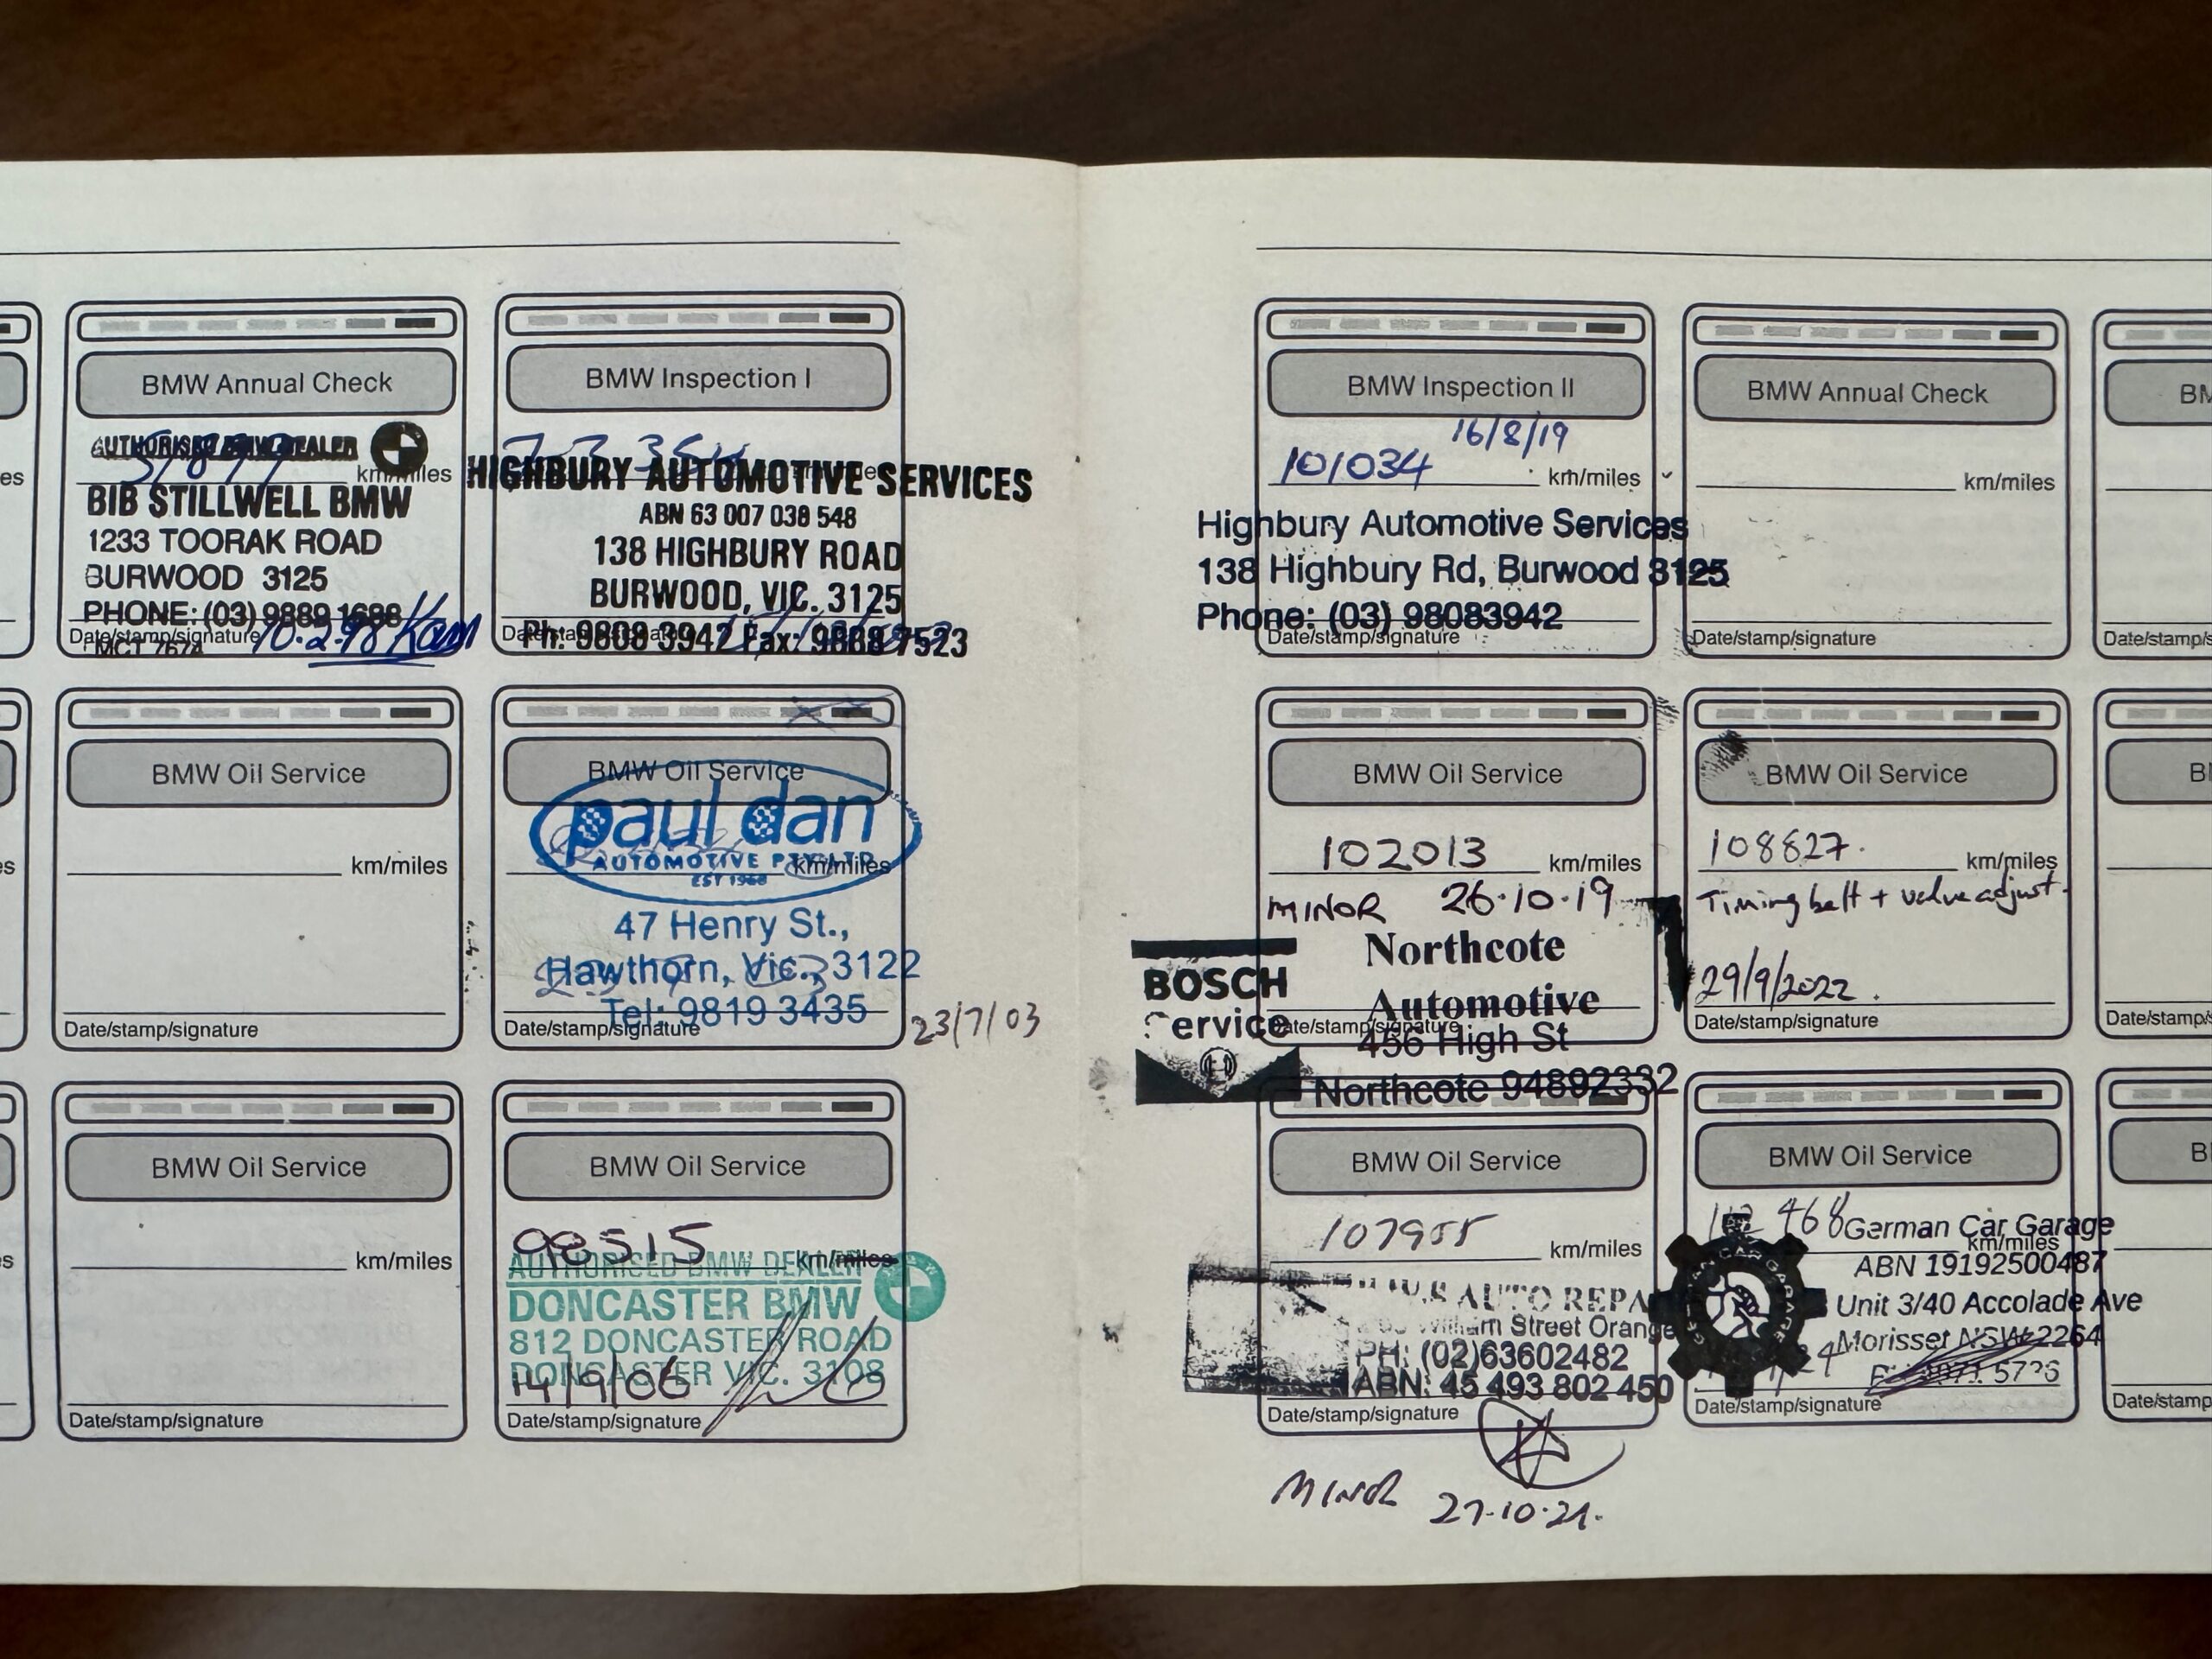 BMW Annual Check
AUTHORISED BMW DEALER
km/miles
BIB STILLWELL BMW
1233 TOORAK ROAD
BURWOOD 3125
PHONE: (03) 9889 1688
Date/stamp/signature
MCT 7674
10.2.98
BMW Inspection I
HIGHBURY AUTOMOTIVE SERVICES
ABN 63 007 038 548
138 HIGHBURY ROAD
BURWOOD, VIC. 3125
Ph: 9808 3942 Fax: 9888 7523
BMW Oil Service
km/miles
Date/stamp/signature
BMW Oil Service
paul dan
AUTOMOTIVE PTY LTD
km/miles
EST 1968
47 Henry St.,
Hawthorn, Vic., 3122
Tel: 9819 3435
Date/stamp/signature
23/7/03
BMW Oil Service
km/miles
Date/stamp/signature
BMW Oil Service
98515
km/miles
AUTHORISED BMW DEALER
DONCASTER BMW
812 DONCASTER ROAD
DONCASTER VIC. 3108
14/9/06
Date/stamp/signature
BMW Inspection II
16/8/19
101034
km/miles
Highbury Automotive Services
138 Highbury Rd, Burwood 3125
Phone: (03) 98083942
Date/stamp/signature
BMW Annual Check
km/miles
Date/stamp/signature
BMW Oil Service
102013
km/miles
MINOR 26.10.19
BOSCH
Service
Northcote
Automotive
Date/stamp/signature
456 High St
Northcote 94892332
BMW Oil Service
108827.
km/miles
Timing belt + valve adjust.
29/9/2022.
Date/stamp/signature
BMW Oil Service
107955
km/miles
AUTO REPA
William Street Orange
PH: (02)63602482
ABN: 45 493 802 450
Date/stamp/signature
MINOR 27.10.21.
BMW Oil Service
112468
km/miles
German Car Garage
ABN 19192500487
Unit 3/40 Accolade Ave
Morisset NSW 2264
GERMAN CAR GARAGE
Date/stamp/signature